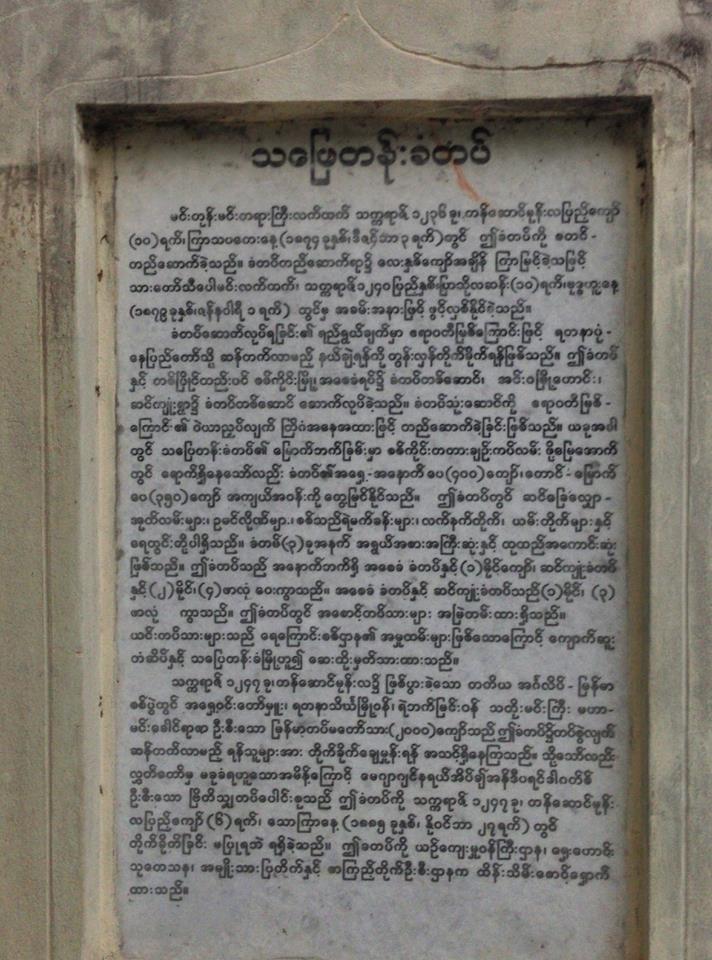 သပြေတန်းခံတပ်
မင်းတုန်းမင်းတရားကြီးလက်ထက် သက္ကရာဇ် ၁၂၃၆ ခု၊ တန်ဆောင်မုန်းလပြည့်ကျော်
(၁၀)ရက်၊ ကြာသပတေးနေ့ (၁၈၇၄ ခုနှစ်၊ ဒီဇင်ဘာ ၃ ရက်)တွင် ဤခံတပ်ကို စတင်-
တည်ဆောက်ခဲ့သည်။ ခံတပ်တည်ဆောက်ရာ၌ လေးနှစ်ကျော်အချိန် ကြာမြင့်ခဲ့သဖြင့်
သားတော်သီပေါမင်းလက်ထက်၊ သက္ကရာဇ် ၁၂၄၀ ပြည့်နှစ်၊ ပြာသိုလဆန်း(၁၀)ရက်၊ ဗုဒ္ဓဟူးနေ့
(၁၈၇၉ ခုနှစ်၊ ဇန်နဝါရီ ၁ ရက်) တွင်မှ အခမ်းအနားဖြင့် ဖွင့်လှစ်နိုင်ခဲ့သည်။
ခံတပ်ဆောက်လုပ်ရခြင်း၏ ရည်ရွယ်ချက်မှာ ဧရာဝတီမြစ်ကြောင်းဖြင့် ရတနာပုံ-
နေပြည်တော်သို့ ဆန်တက်လာမည့် နယ်ချဲ့ရန်ကို တွန်းလှန်တိုက်ခိုက်ရန်ဖြစ်သည်။ ဤခံတပ်
နှင့် တစ်ပြိုင်တည်းပင် စစ်ကိုင်းမြို့၊ အစေခံရပ်၌ ခံတပ်တစ်ဆောင်၊ အင်းဝမြို့ဟောင်း၊
ဆင်ကျုံးရွာ၌ ခံတပ်တစ်ဆောင် ဆောက်လုပ်ခဲ့သည်။ ခံတပ်သုံးဆောင်ကို ဧရာဝတီမြစ်-
ကြောင်း၏ ဝဲယာညှပ်လျက် တြိဂံအနေအထားဖြင့် တည်ဆောက်ခဲ့ခြင်းဖြစ်သည်။ ယခုအခါ
တွင် သပြေတန်းခံတပ်၏ မြောက်ဘက်ခြမ်းမှာ စစ်ကိုင်းတံတားချဉ်းကပ်လမ်း ဖို့မြေအောက်
တွင် ရောက်ရှိနေသော်လည်း ခံတပ်၏အရှေ့-အနောက် ပေ(၄၀၀)ကျော်၊ တောင်-မြောက်
ပေ(၃၅၀)ကျော် အကျယ်အဝန်းကို တွေ့မြင်နိုင်သည်။ ဤခံတပ်တွင် ဆင်ခြေလျှော-
အုတ်လမ်းများ၊ ဥမင်လိုဏ်များ၊ စစ်သည်ရဲမက်ခန်းများ၊ လက်နက်တိုက်၊ ယမ်းတိုက်များနှင့်
ရေတွင်းတို့ပါရှိသည်။ ခံတပ်(၃)ခုအနက် အရွယ်အစားအကြီးဆုံးနှင့် ထုထည်အကောင်းဆုံး
ဖြစ်သည်။ ဤခံတပ်သည် အနောက်ဘက်ရှိ အစေခံ ခံတပ်နှင့် (၁)မိုင်ကျော်၊ ဆင်ကျုံးခံတပ်
နှင့် (၂)မိုင်၊ (၄)ဖာလုံ ဝေးကွာသည်။ အစေခံ ခံတပ်နှင့် ဆင်ကျုံးခံတပ်သည် (၁)မိုင်၊ (၃)
ဖာလုံ ကွာသည်။ ဤခံတပ်တွင် အစောင့်တပ်သားများ အမြဲတမ်းထားရှိသည်။
ယင်းတပ်သားများသည် ရေကြောင်းစစ်ဌာန၏ အမှုထမ်းများဖြစ်သောကြောင့် ကျောက်ဆူး
တံဆိပ်နှင့် သပြေတန်းခံမြို့ဟူ၍ ဆေးထိုးမှတ်သားထားသည်။
သက္ကရာဇ် ၁၂၄၇ ခု၊ တန်ဆောင်မုန်းလ၌ ဖြစ်ပွားခဲ့သော တတိယ အင်္ဂလိပ်-မြန်မာ
စစ်ပွဲတွင် အရှေ့ဝင်းတော်မှူး၊ ရတနာသိင်္ဃမြို့ဝန်၊ ရဲဘက်မြင်းဝန် သတိုးမင်းကြီး မဟာ-
မင်းခေါင်ရာဇာ ဦးစီးသော မြန်မာ့တပ်မတော်သား(၂၀၀၀)ကျော်သည် ဤခံတပ်၌တပ်စွဲလျက်
ဆန်တက်လာမည့် ရန်သူများအား တိုက်ခိုက်ချေမှုန်းရန် အသင့်ရှိနေကြသည်။ သို့သော်လည်း
လွှတ်တော်မှ မခုခံရဟူသောအမိန့်ကြောင့် မေဂျာဂျင်နရယ်အိပ်ချ်အန်ဒီပရင်ဒါဂတ်စ်
ဦးစီးသော ဗြိတိသျှတပ်ပေါင်းစုသည် ဤခံတပ်ကို သက္ကရာဇ် ၁၂၄၇ ခု၊ တန်ဆောင်မုန်း-
လပြည့်ကျော် (၆)ရက်၊ သောကြာနေ့ (၁၈၈၅ ခုနှစ်၊ နိုဝင်ဘာ ၂၇ ရက်) တွင်
တိုက်ခိုက်ခြင်း မပြုရဘဲ ရရှိခဲ့သည်။ ဤခံတပ်ကို ယဉ်ကျေးမှုဝန်ကြီးဌာန၊ ရှေးဟောင်း
သုတေသန၊ အမျိုးသားပြတိုက်နှင့် စာကြည့်တိုက်ဦးစီးဌာနက ထိန်းသိမ်းစောင့်ရှောက်
ထားသည်။